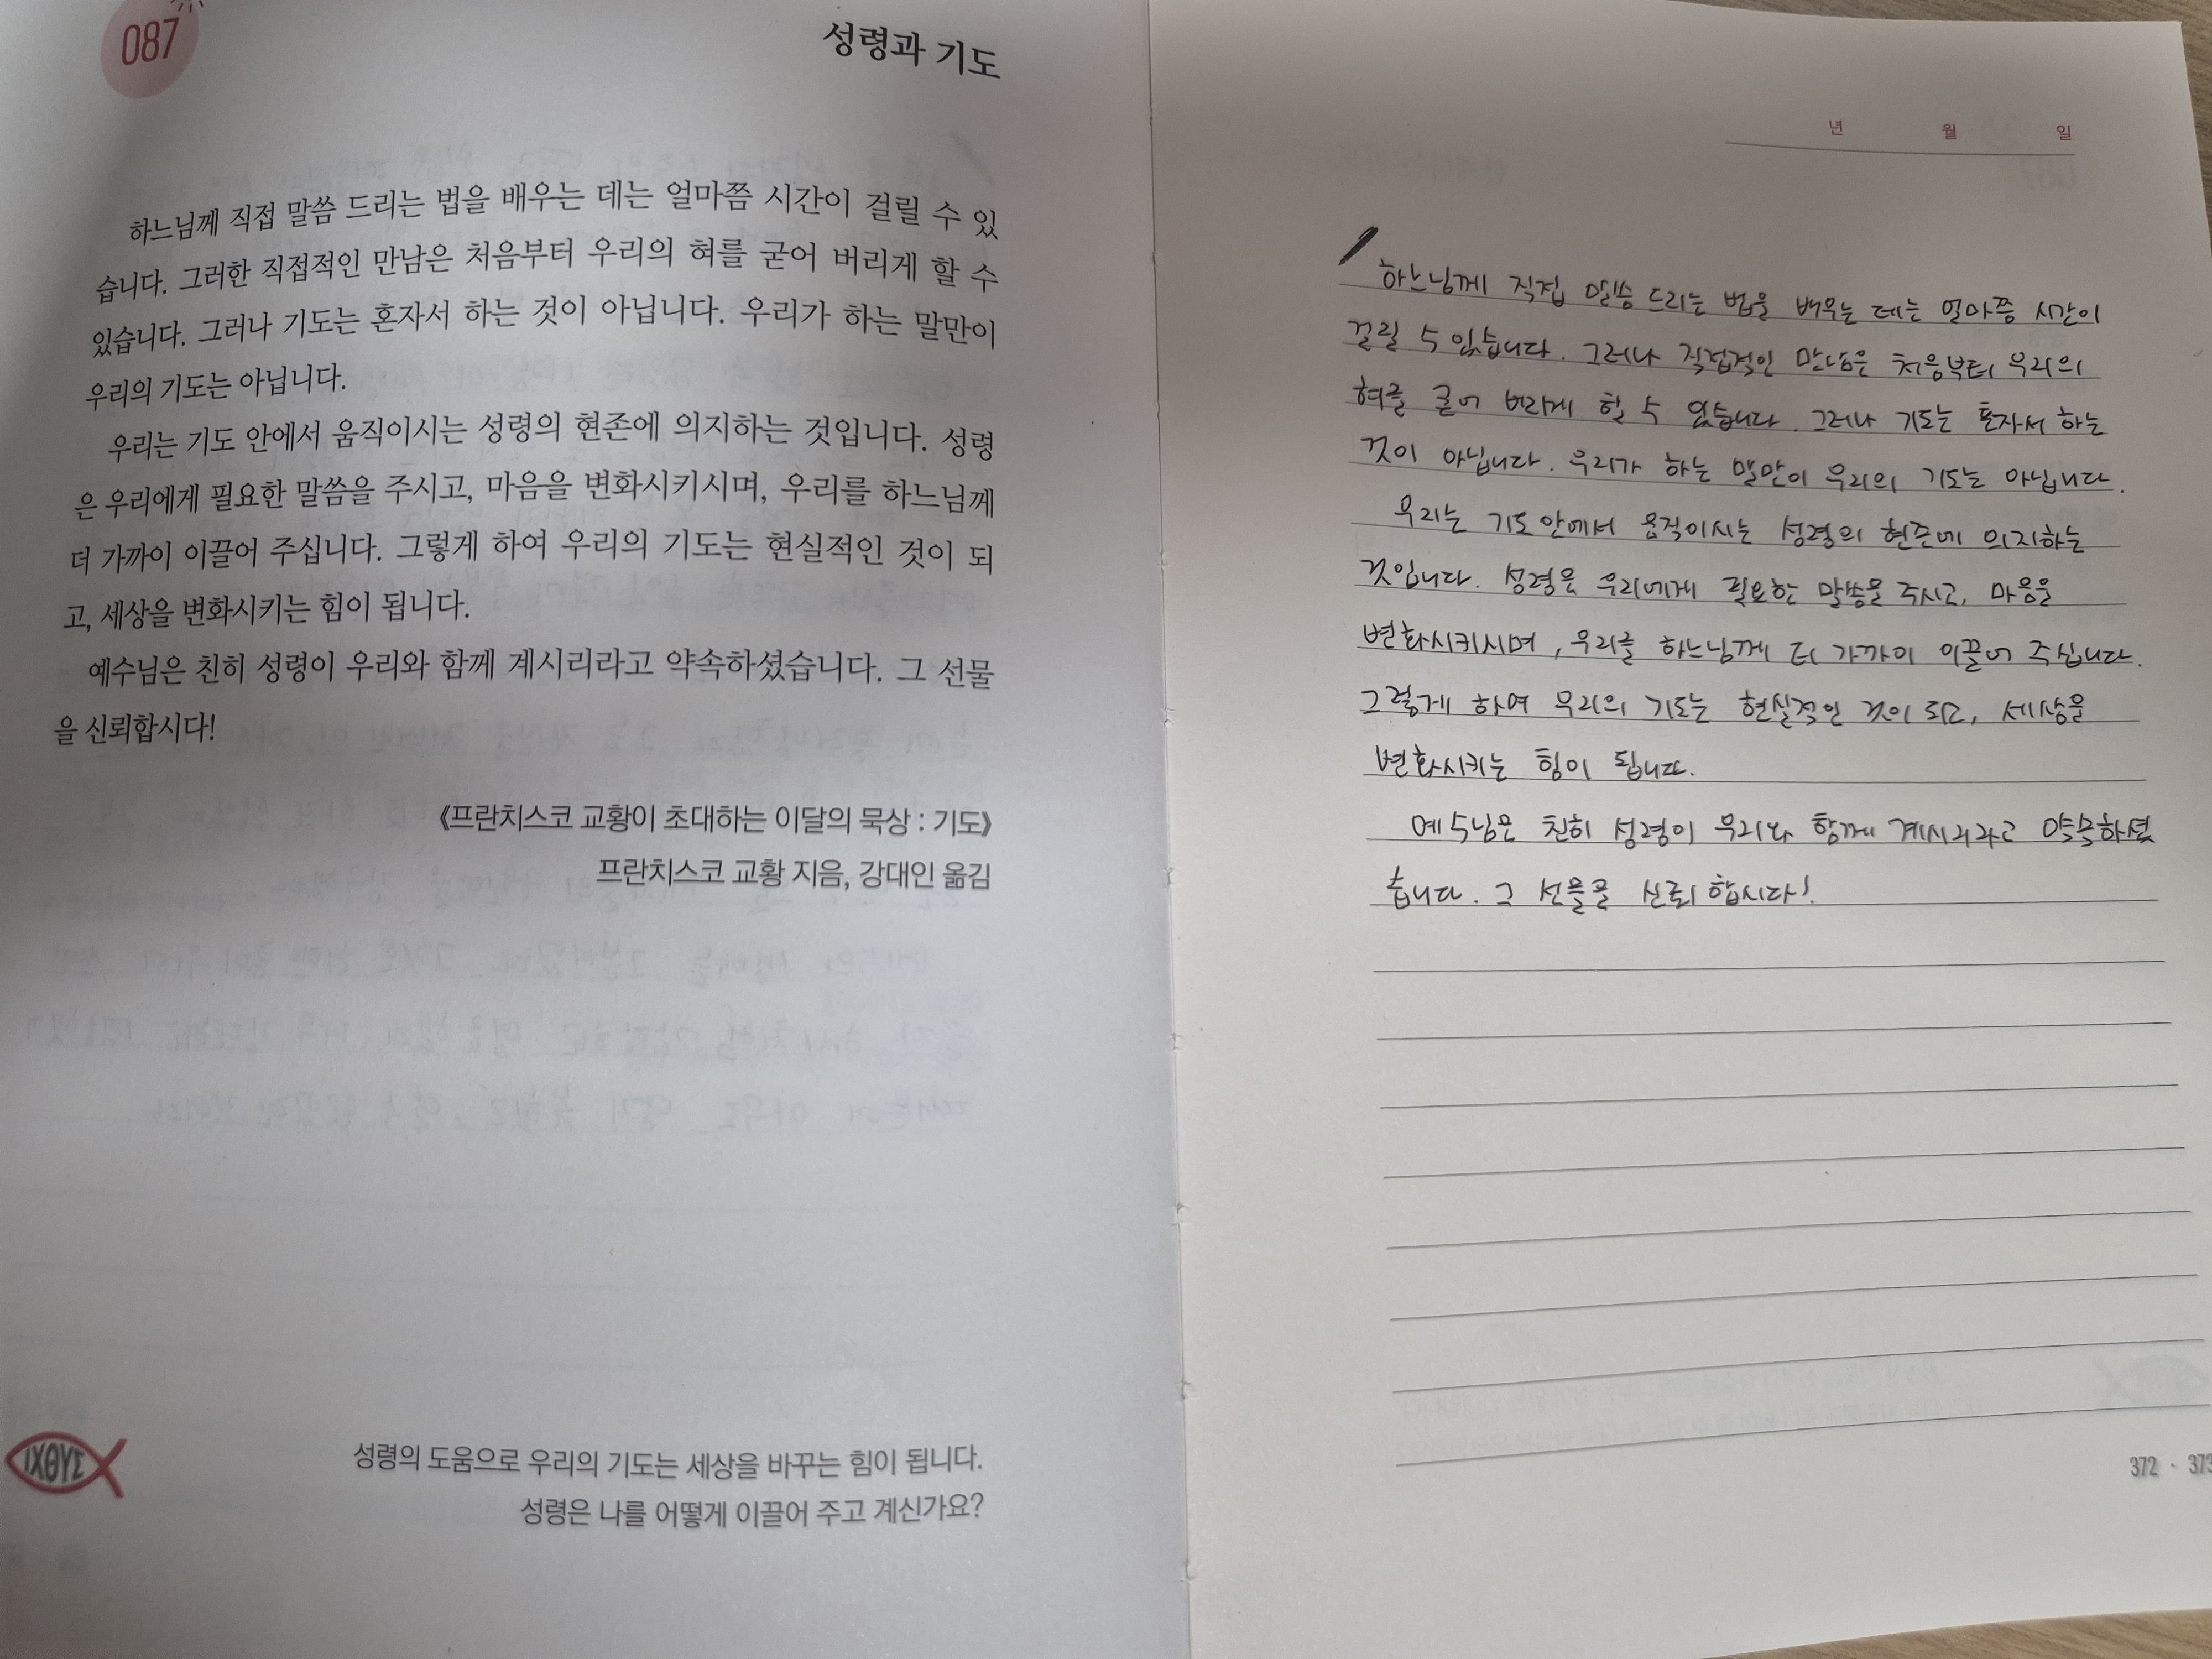 087
성령과 기도
하느님께 직접 말씀 드리는 법을 배우는 데는 얼마쯤 시간이 걸릴 수 있
습니다. 그러한 직접적인 만남은 처음부터 우리의 혀를 굳어 버리게 할 수
있습니다. 그러나 기도는 혼자서 하는 것이 아닙니다. 우리가 하는 말만이
우리의 기도는 아닙니다.
우리는 기도 안에서 움직이시는 성령의 현존에 의지하는 것입니다. 성령
은 우리에게 필요한 말씀을 주시고, 마음을 변화시키시며, 우리를 하느님께
더 가까이 이끌어 주십니다. 그렇게 하여 우리의 기도는 현실적인 것이 되
고, 세상을 변화시키는 힘이 됩니다.
예수님은 친히 성령이 우리와 함께 계시리라고 약속하셨습니다. 그 선물
을 신뢰합시다!
《프란치스코 교황이 초대하는 이달의 묵상 : 기도》
프란치스코 교황 지음, 강대인 옮김
ΙΧΘΥΣ
성령의 도움으로 우리의 기도는 세상을 바꾸는 힘이 됩니다.
성령은 나를 어떻게 이끌어 주고 계신가요?
년 월 일
하느님께 직접 말씀 드리는 법을 배우는 데는 얼마쯤 시간이
걸릴 수 있습니다. 그러나 직접적인 만남은 처음부터 우리의
혀를 굳어 버리게 할 수 있습니다. 그러나 기도는 혼자서 하는
것이 아닙니다. 우리가 하는 말만이 우리의 기도는 아닙니다.
우리는 기도 안에서 움직이시는 성령의 현존에 의지하는
것입니다. 성령은 우리에게 필요한 말씀을 주시고, 마음을
변화시키시며, 우리를 하느님께 더 가까이 이끌어 주십니다.
그렇게 하여 우리의 기도는 현실적인 것이 되고, 세상을
변화시키는 힘이 됩니다.
예수님은 친히 성령이 우리와 함께 계시리라고 약속하셨
습니다. 그 선물을 신뢰합시다!
372 · 373